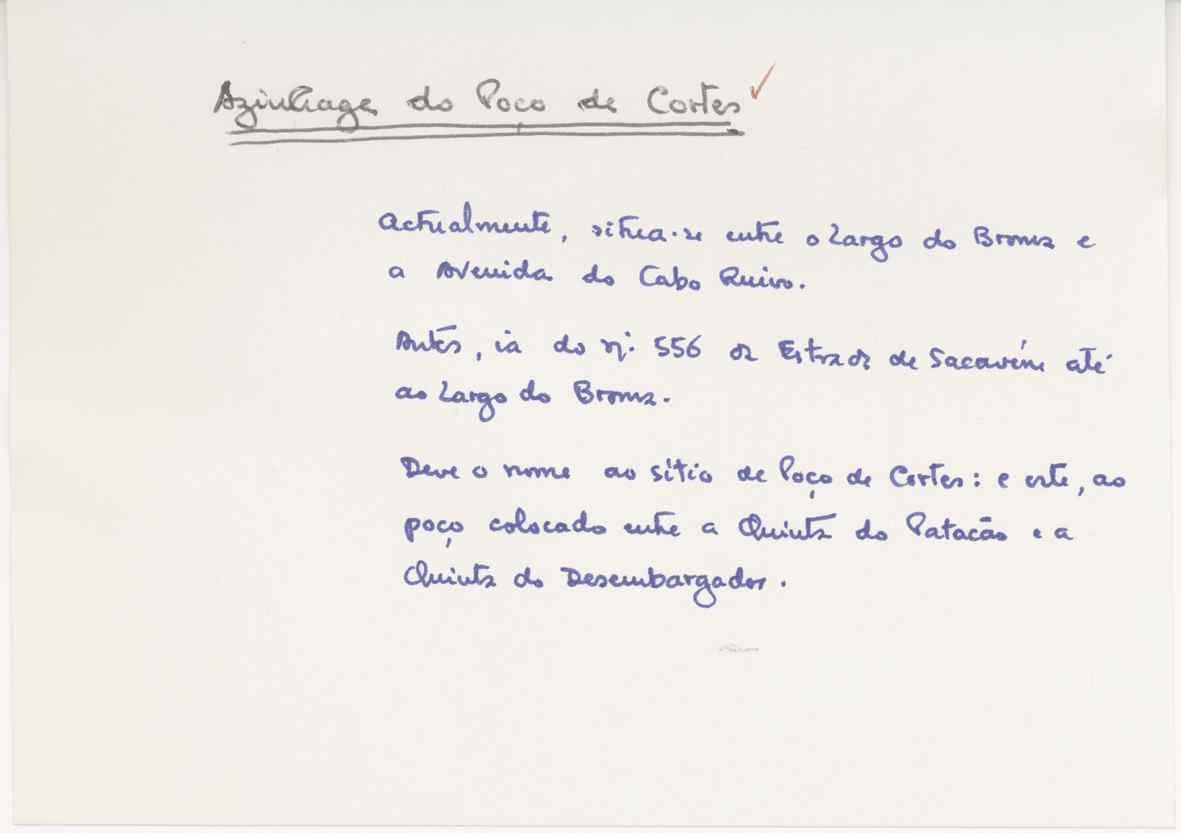 Azinhaga do Poço de Cortes
Actualmente, situa-se entre o Largo do Broma e
a Avenida do Cabo Ruivo.
Antes, ia do nº. 556 da Estrada de Sacavém até
ao Largo do Broma.
Deve o nome ao sítio de Poço de Cortes: e este, ao
poço colocado entre a Quinta do Patacão e a
Quinta do Desembargador.